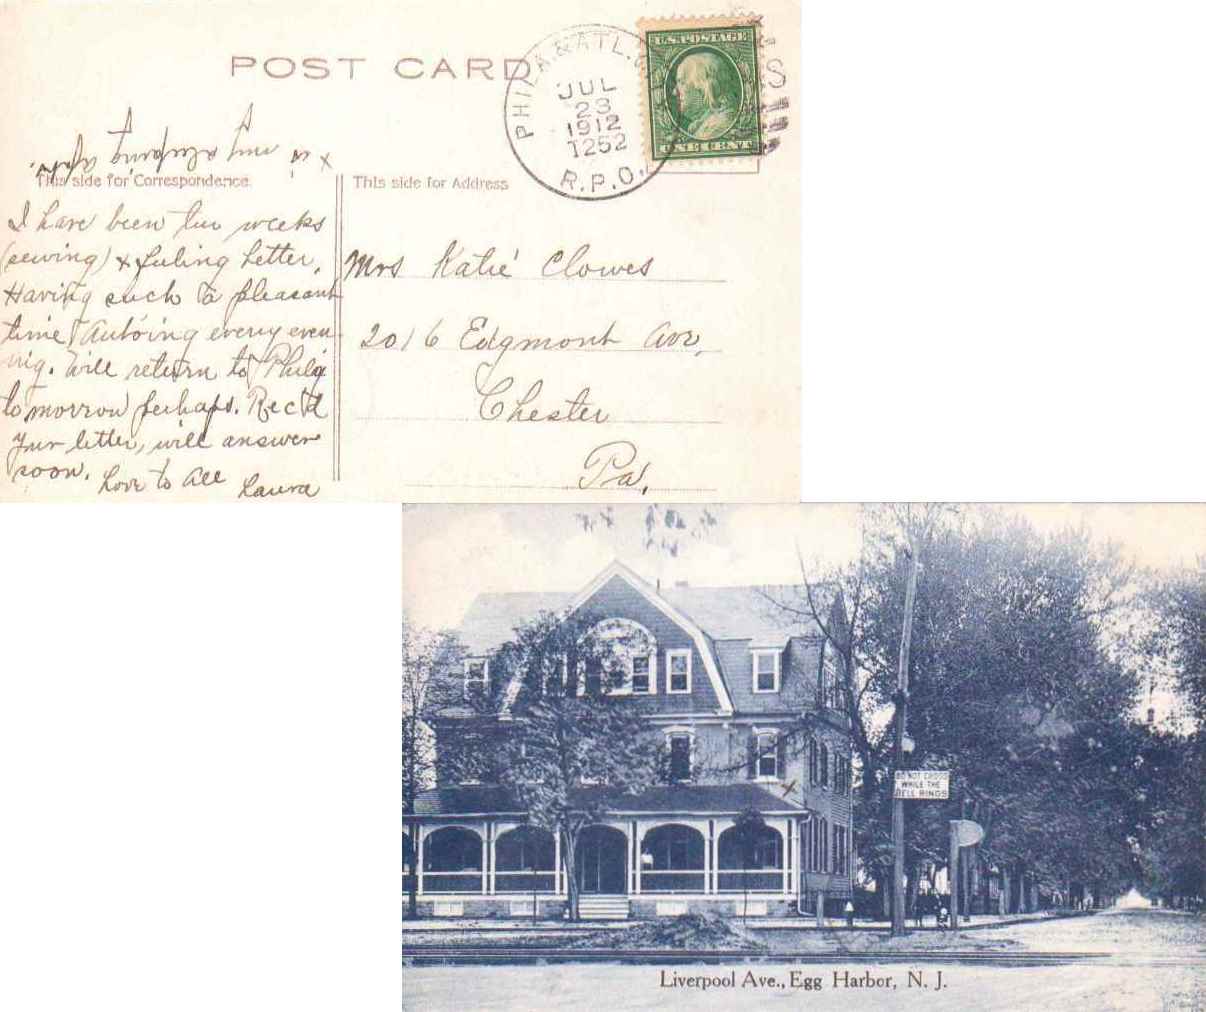 POST CARD
PHILA & ATL.
JUL
23
1912
1252
R.P.O.
U.S. POSTAGE
ONE CENT
S
x is my sleeping apts.
This side for Correspondence.
This side for Address
I have been two weeks
(sewing) & feeling better.
Having such a pleasant
time Autoing every even
ing. Will return to Phila
to morrow perhaps. Rec'd
your letter, will answer
soon. Love to all Laura
Mrs Katie Clowes
2016 Edgmont Ave,
Chester
Pa,
DO NOT CROSS
WHILE THE
BELL RINGS
x
Liverpool Ave., Egg Harbor, N. J.